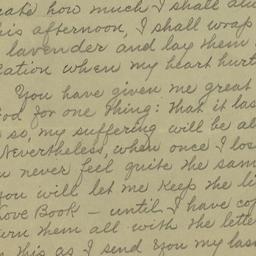 how much I shall
this afternoon, I shall wrap
lavender and lay them
when my heart hurt
You have given me great
God for one thing: that it las
so, my suffering will be al
Nevertheless, when once I los
never feel quite the sam
you will let me keep the li
Love Book — until I have cop
them all with the lette
this as I send you my las